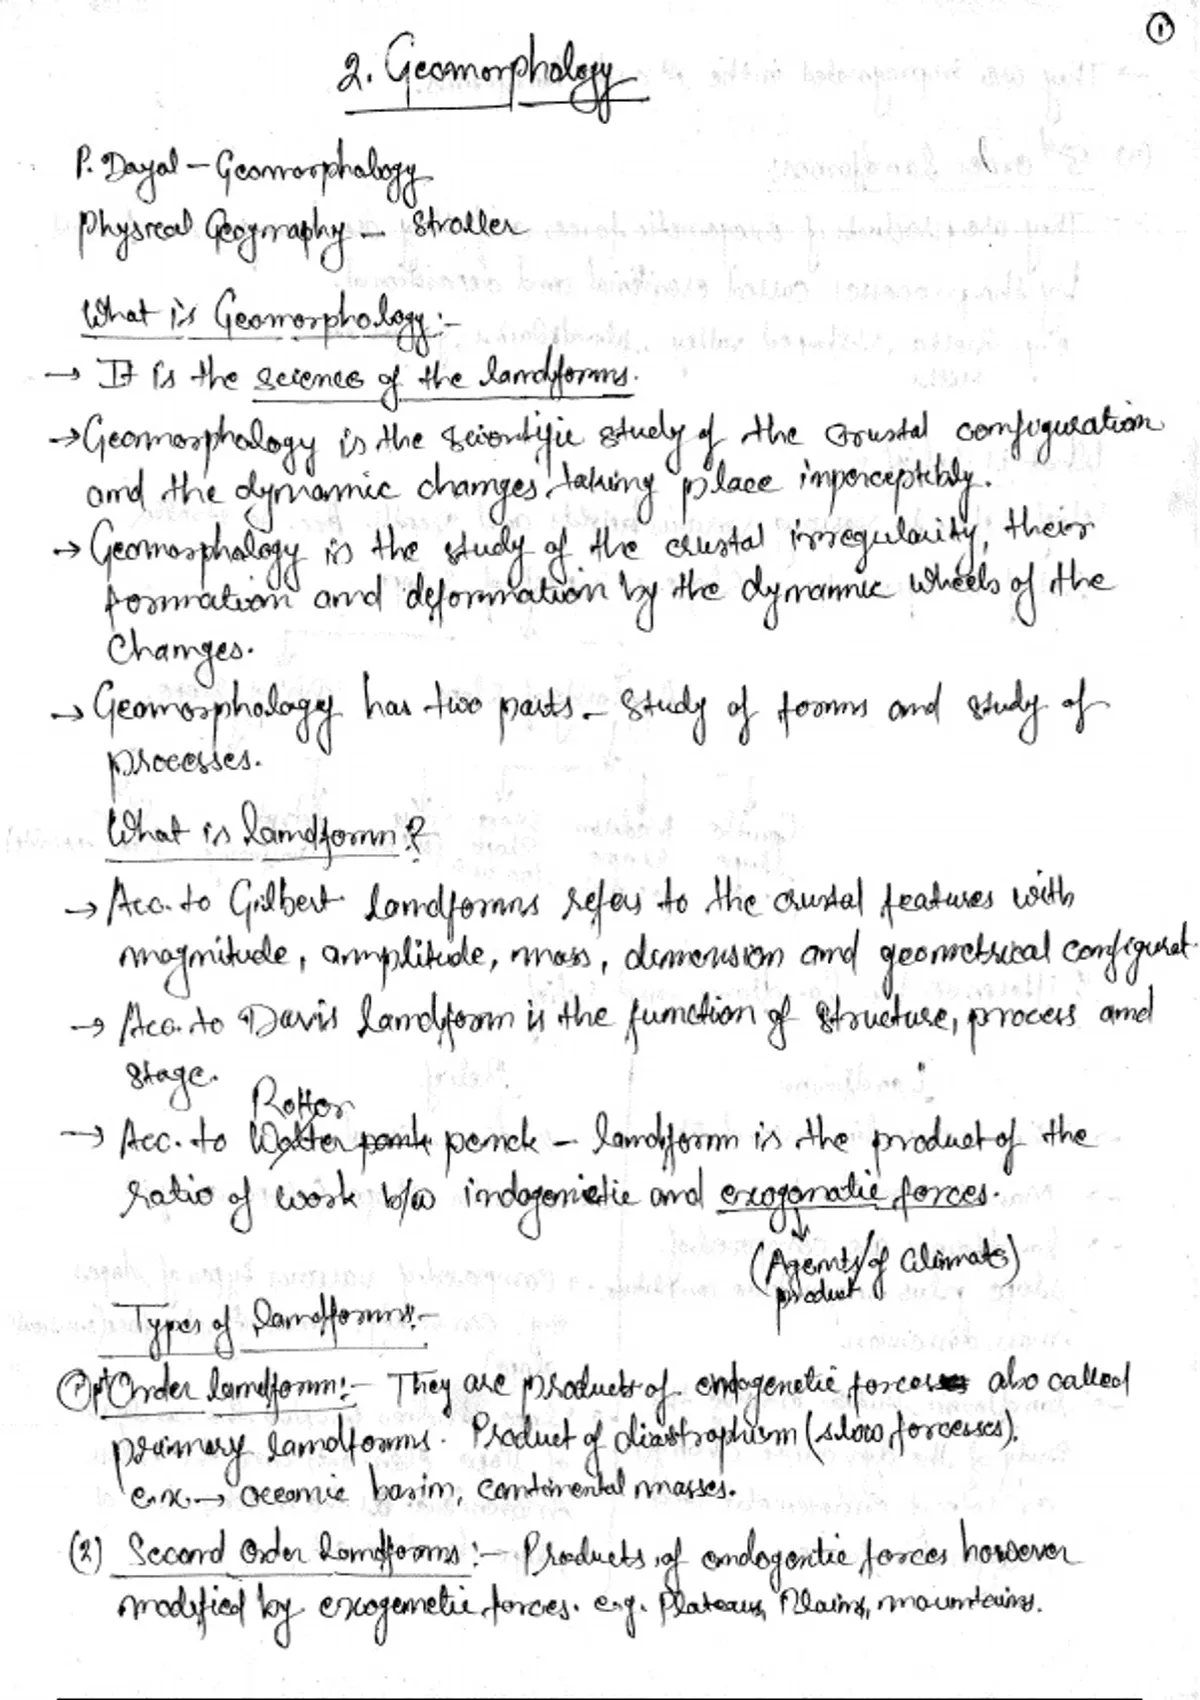 ①
2. Geomorphology
P. Dayal – Geomorphology
Physical Geography – Straller
What is Geomorphology:-
→ It is the science of the landforms.
→ Geomorphology is the scientific study of the crustal configuration
and the dynamic changes taking place imperceptibly.
→ Geomorphology is the study of the crustal irregularity, their
formation and deformation by the dynamic wheels of the
changes.
→ Geomorphology has two parts – study of forms and study of
processes.
What is landform?
→ Acc. to Gilbert landforms refers to the crustal features with
magnitude, amplitude, mass, dimension and geometrical configurat
→ Acc. to Davis landform is the function of structure, process and
stage.
→ Acc. to Walter penck – landform is the product of the
ratio of work b/w indogenetic and exogenatic forces.
(Agents/of climate)
product
Types of landforms:-
(1) 1st Order landform:- They are product of endogenetic forces also called
primary landforms. Product of diastrophism (slow forcesses).
e.x. → oceanic basin, continental masses.
(2) Second Order Landforms:- Products of endogentic forces however
modified by exogenetic forces. e.g. Plateaus, Plains, mountains.